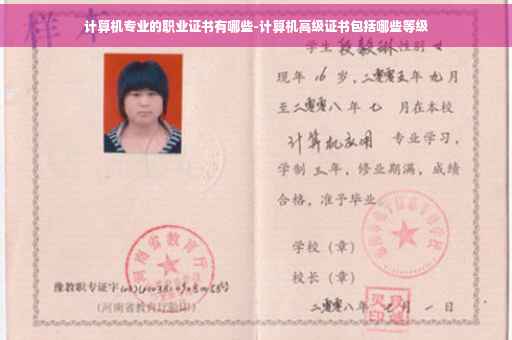 计算机专业的职业证书有哪些-计算机高级证书包括哪些等级
样本
学生 段毅琳 性别 女
现年 16 岁，二零零五年 九月
至二零零八年 七 月在本校
计算机应用 专业学习，
学制 三年，修业期满，成绩
合格，准予毕业。
学校（章）
校长（章）
二零零八年 七 月 一 日
河南省教育厅
豫教职专证字
(河南省教育厅验印)